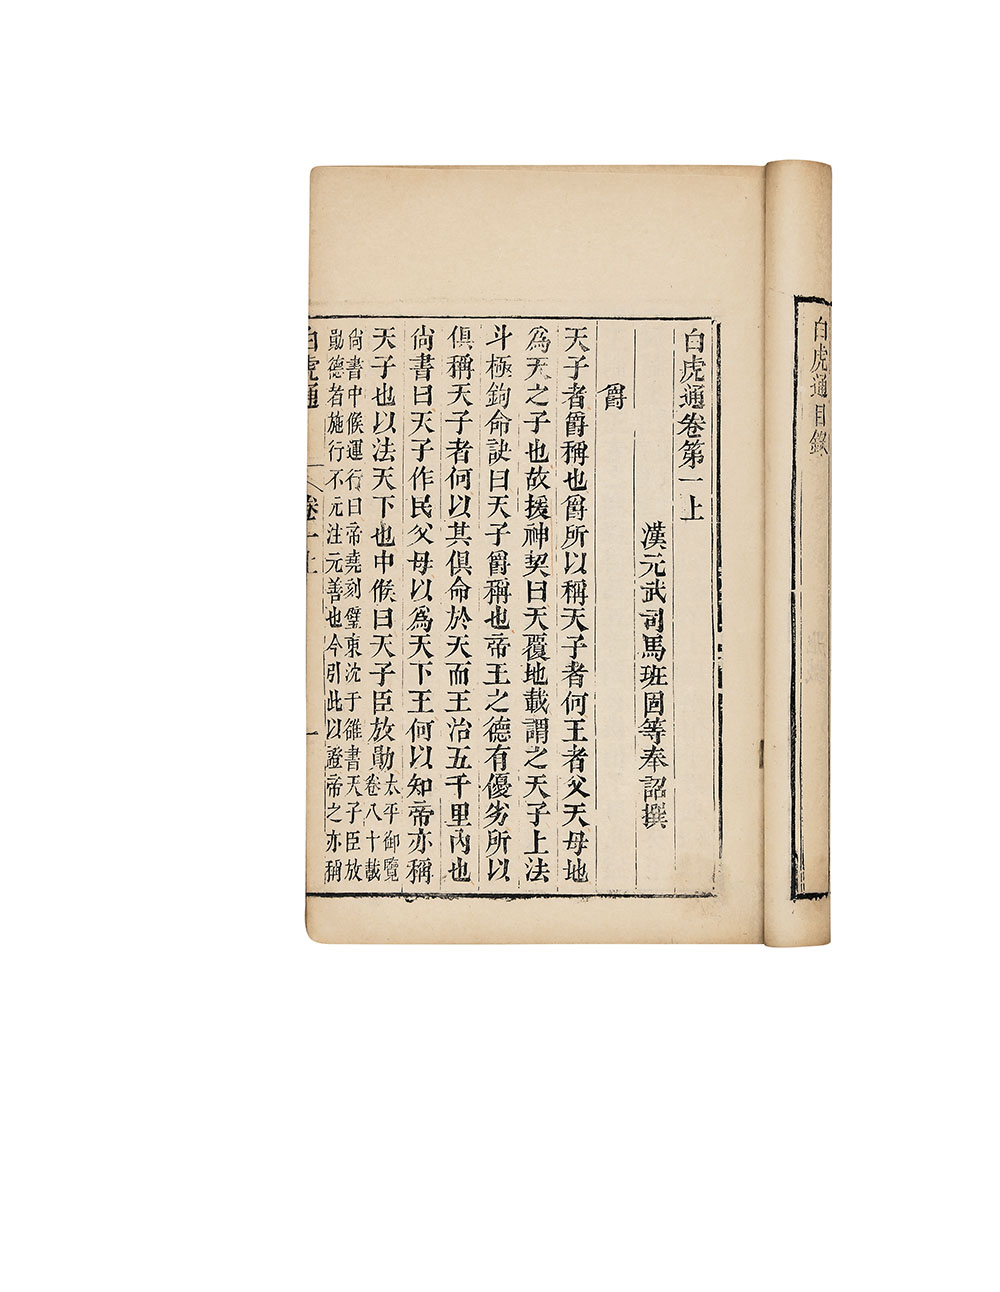 白虎通目錄
白虎通卷第一上
漢元武司馬班固等奉詔撰
爵
天子者爵稱也爵所以稱天子者何王者父天母地
爲天之子也故援神契曰天覆地載謂之天子上法
斗極鉤命訣曰天子爵稱也帝王之德有優劣所以
俱稱天子者何以其俱命於天而王治五千里內也
尙書曰天子作民父母以爲天下王何以知帝亦稱
天子也以法天下也中候曰天子臣放勛
太平御覽
卷八十載
尙書中候運行曰帝堯刻璧東沈于雒書天子臣放
勛德者施行不元注元善也今引此以證帝之亦稱
白虎通 卷一上 一